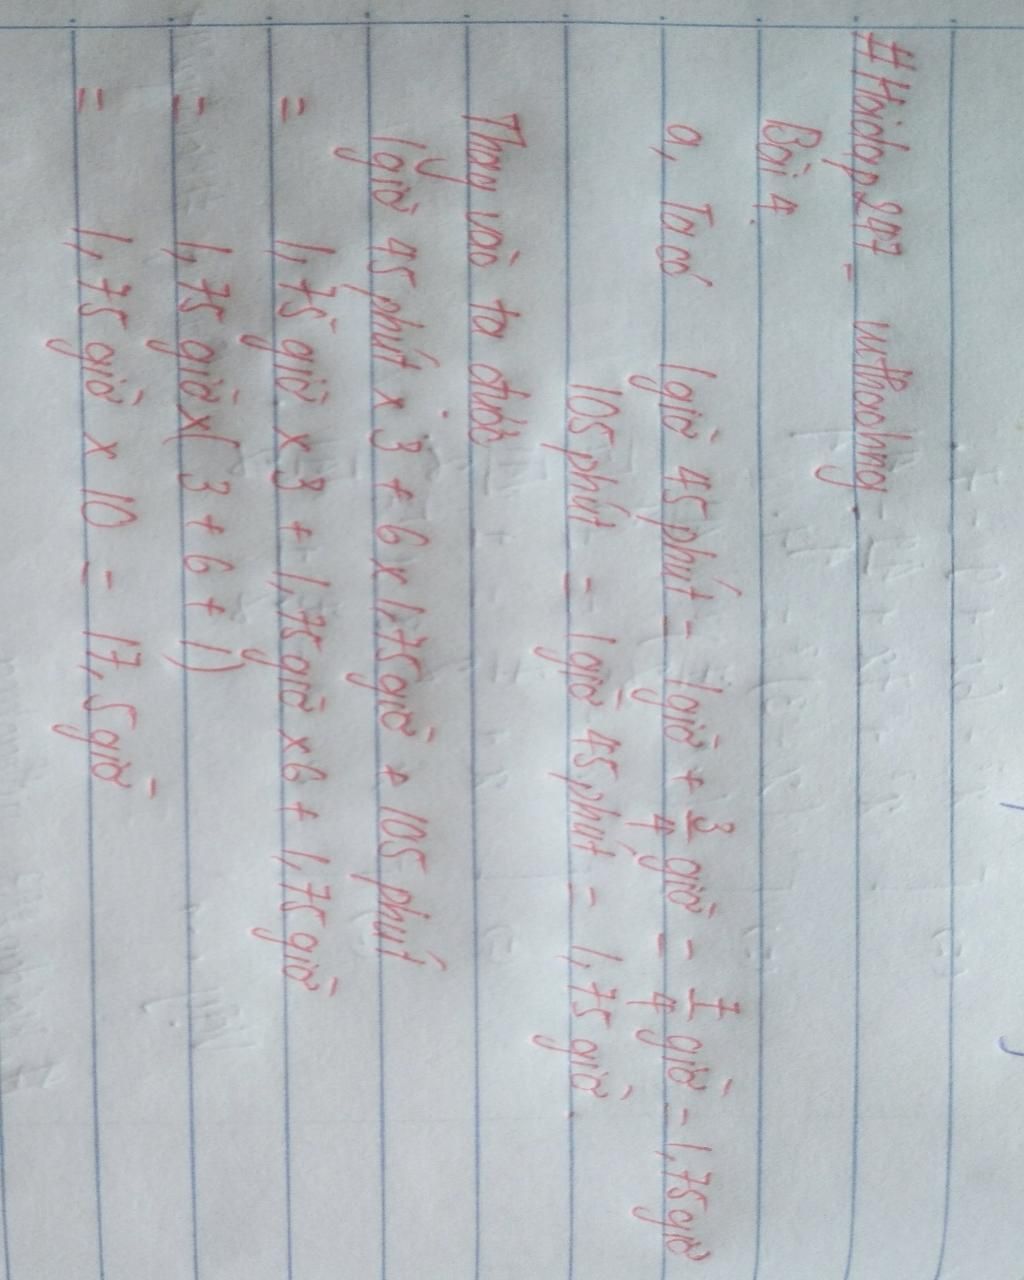 #Hoidap247 - mthaohng.
Bài 4.
a, Ta có 1giờ 45 phút = 1giờ + 3/4 giờ = 7/4 giờ = 1,75 giờ
105 phút = 1giờ 45 phút = 1,75 giờ.
Thay vào ta được
1giờ 45 phút x 3 + 6 x 1,75giờ + 105 phút
= 1,75 giờ x 3 + 1,75giờ x 6 + 1,75 giờ
= 1,75 giờ x ( 3 + 6 + 1)
= 1,75 giờ x 10 = 17,5 giờ